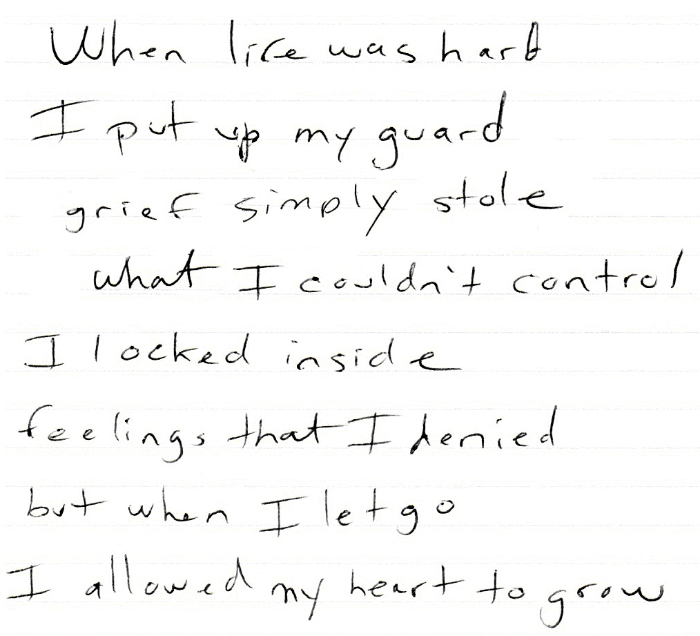 When life was hard
I put up my guard
grief simply stole
what I couldn't control
I locked inside
feelings that I denied
but when I let go
I allowed my heart to grow